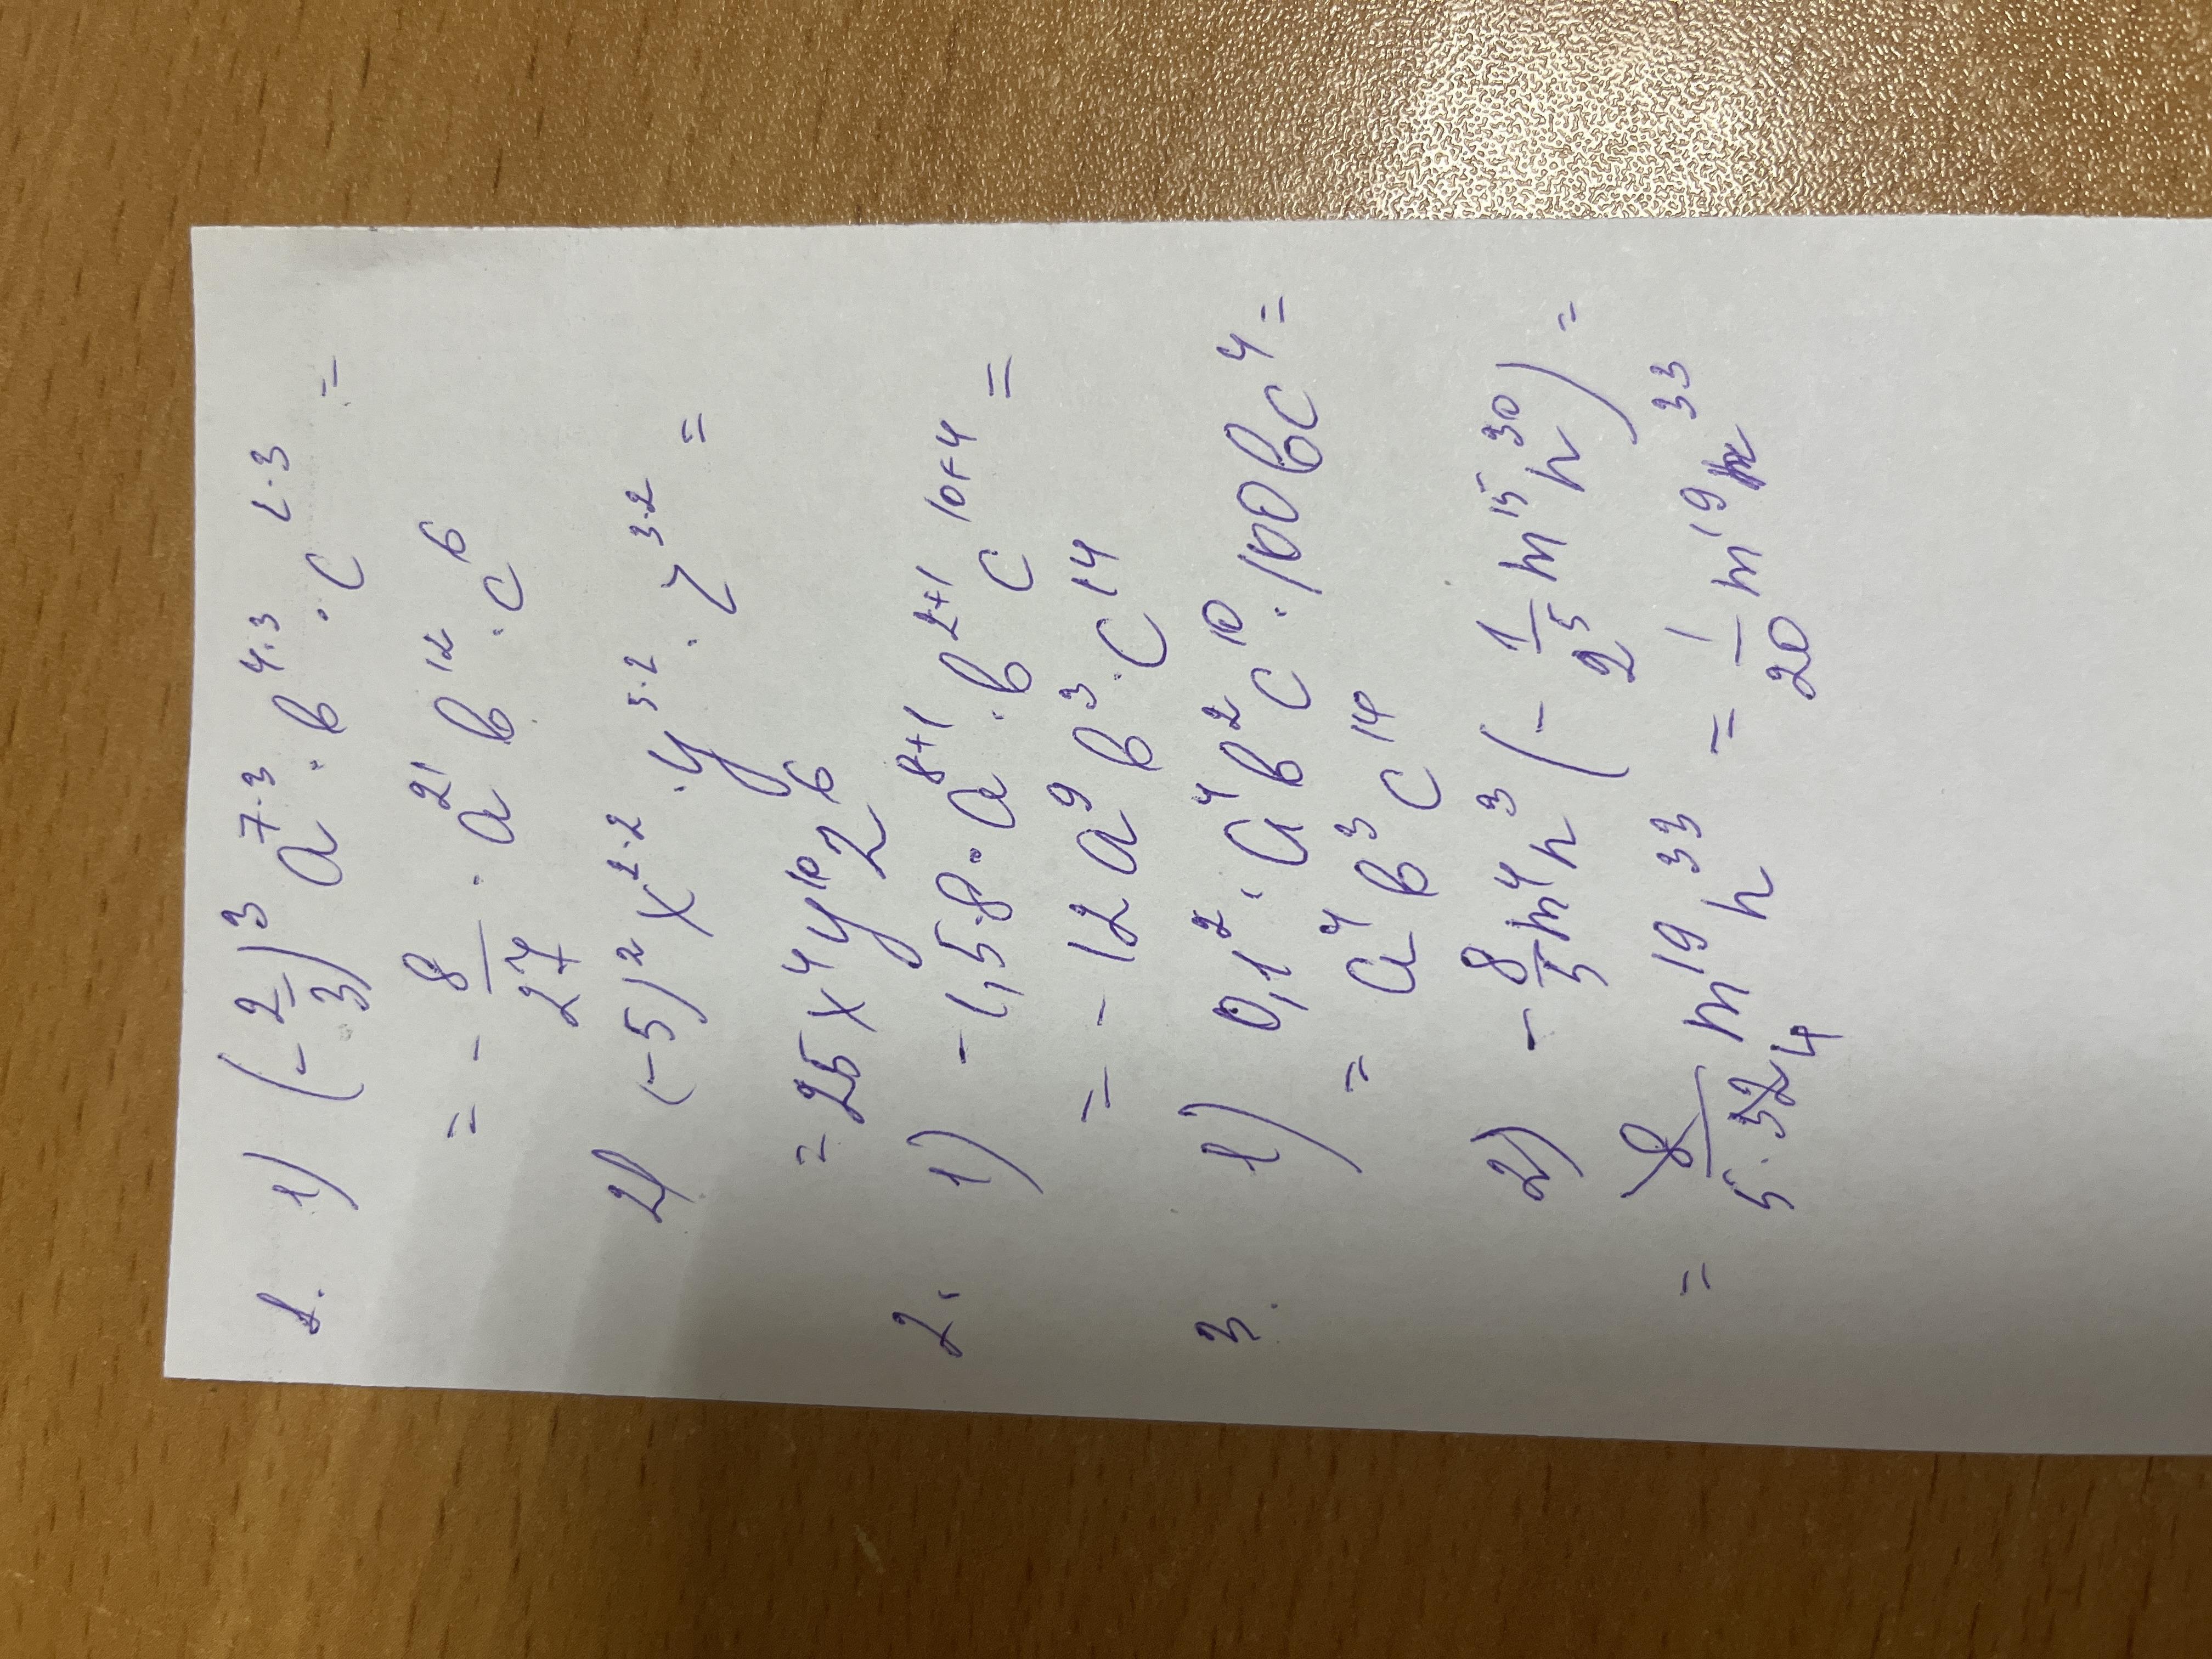 1. 1) (-2/3)³ a⁷·³ · b⁴·³ · c²·³ =
= - 8/27 · a²¹ b¹² · c⁶
2) (-5)² x²·² · y⁵·² · z³·² =
= 25 x⁴ y¹⁰ z⁶
2. 1) -1,5·8 · a⁸⁺¹ · b²⁺¹ c¹⁰⁺⁴ =
= -12 a⁹ b³ · c¹⁴
3. 1) 0,1² · a⁴ b² c¹⁰ · 100 b c⁴ =
= a⁴ b³ c¹⁴
2) - 8/5 m⁴ n³ (- 1/2⁵ m¹⁵ n³⁰) =
= 8/5·32 4 m¹⁹ n³³ = 1/20 m¹⁹ n³³